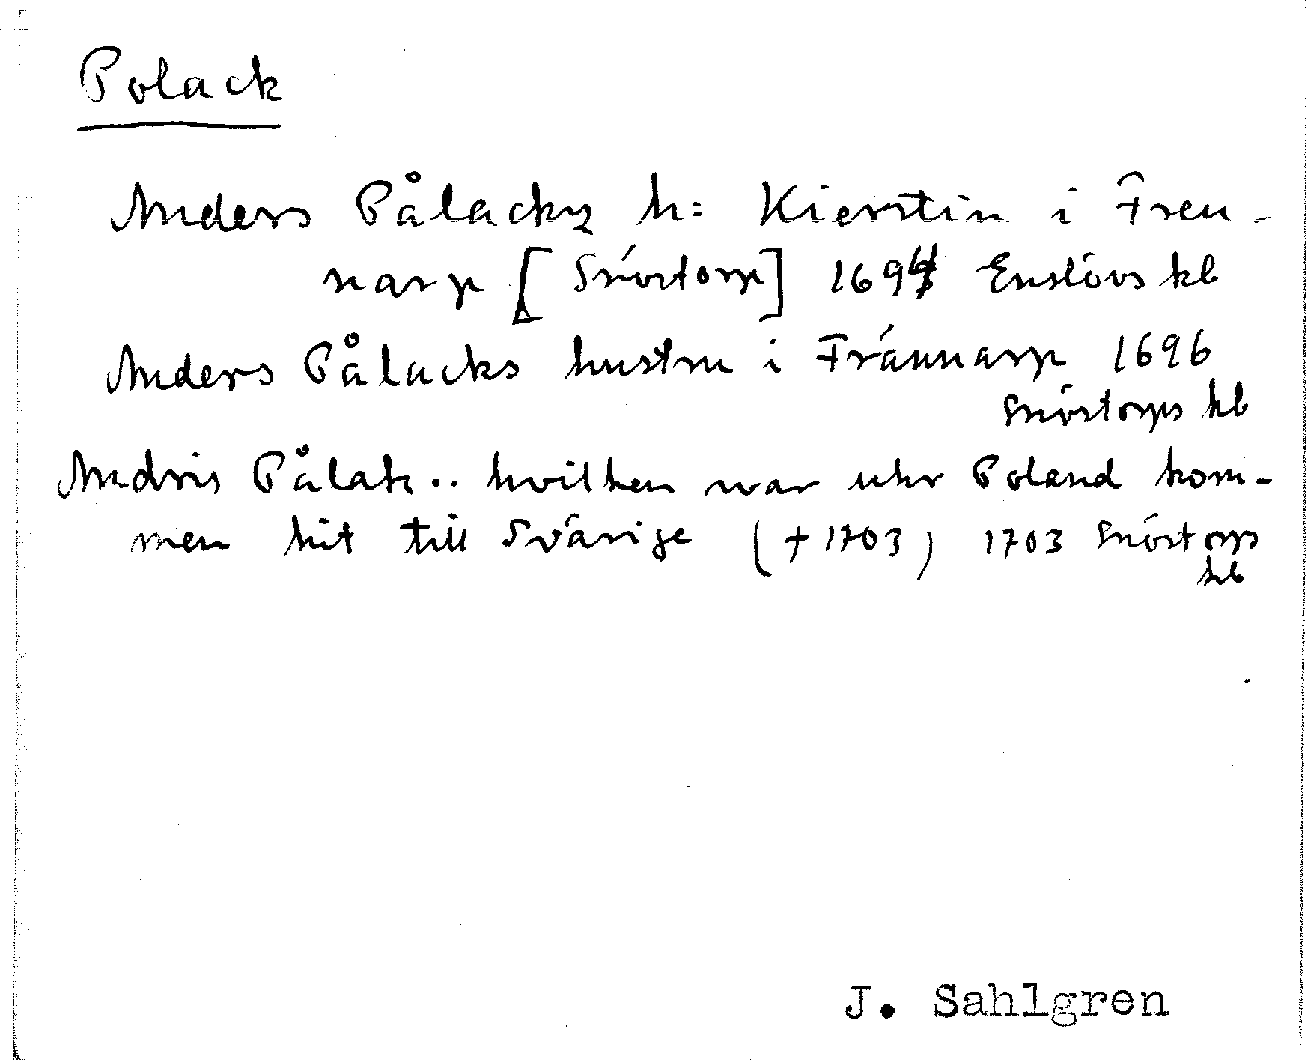 Polack
Anders Pålackz h: Kierstin i Fren-
narp [Snöstorp] 1694 Enslövs kb
Anders Pålacks hustru i Frännarp 1696
Snöstorps kb
Andris Pålak.. hvilken war uhr Poland kom-
men hit till Svärige († 1703) 1703 Snöstorps
kb
J. Sahlgren